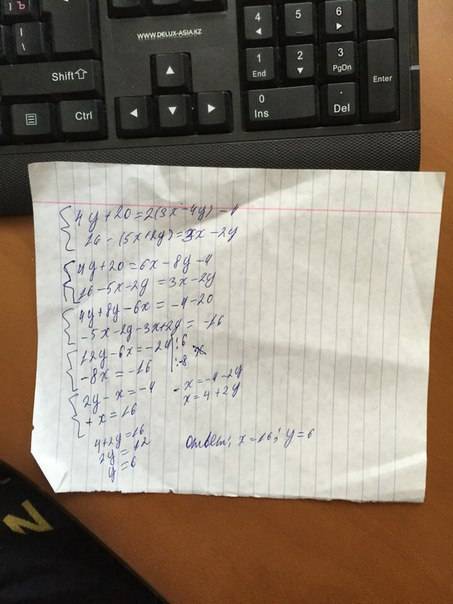 Ъ
I \
4
5
6
WWW.DELUX-ASIA.KZ
Shift
1
End
2
3
PgDn
Enter
Ctrl
0
Ins
.
Del
4y+20=2(3x-4y)-4
16-(5x+2y)=3x-2y
4y+20=6x-8y-4
16-5x-2y=3x-2y
4y+8y-6x=-4-20
-5x-2y-3x+2y=-16
12y-6x=-24 |:6
-8x=-16 |:8
2y-x=-4
-x=-4-2y
+x=16
x=4+2y
4+2y=16
2y=12
y=6
Ответ: x=16; y=6
N